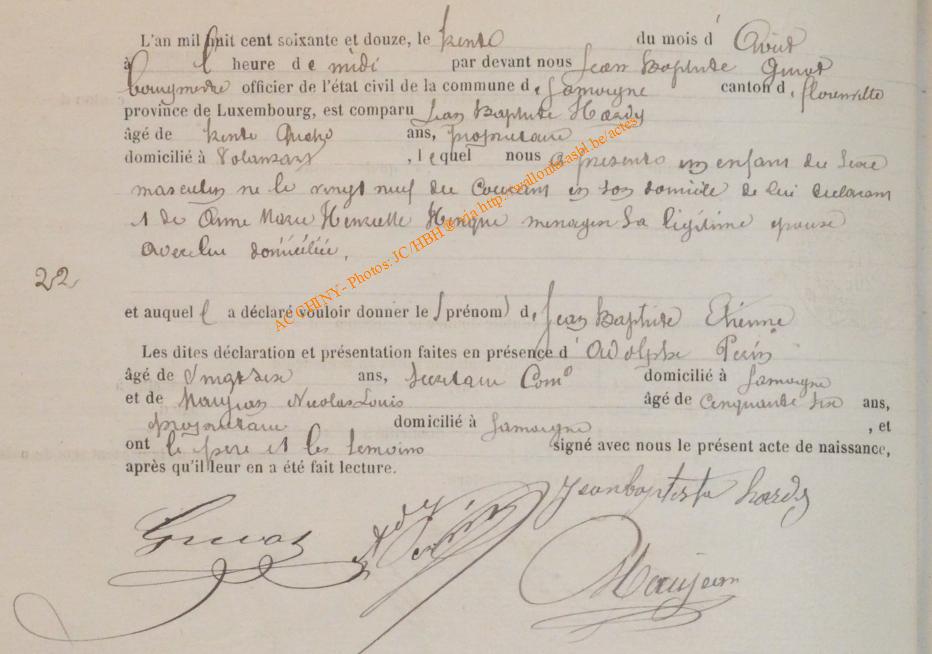 L'an mil huit cent soixante et douze, le trente du mois d'Aout
à l heure de midi par devant nous Jean Baptiste
bourgmestre officier de l'état civil de la commune d, Jamoigne canton d, florenville
province de Luxembourg, est comparu Jean Baptiste Hardy
âgé de trente quatre ans, proprietaire
domicilié à Valansart, lequel nous a presenté un enfant du sexe
masculin né le vingt neuf du courant en son domicile de lui declarant
et de Anne Marie Henriette Henque menagere sa légitime epouse
avec lui domiciliée,
22
et auquel l a déclaré vouloir donner le (prénom) d, Jean Baptiste Etienne
Les dites déclaration et présentation faites en présence d'Adolphe Perin
âgé de vingt six ans, secretaire Com^al domicilié à Jamoigne
et de Maujean Nicolas Louis âgé de cinquante six ans,
proprietaire domicilié à Jamoigne, et
ont le pere et les temoins signé avec nous le présent acte de naissance,
après qu'il leur en a été fait lecture.
Jean baptiste hardy
Ad Perin
Maujean
AC CHINY - Photos: JC/HBH @ via http://wallonia.asbl.be/actes